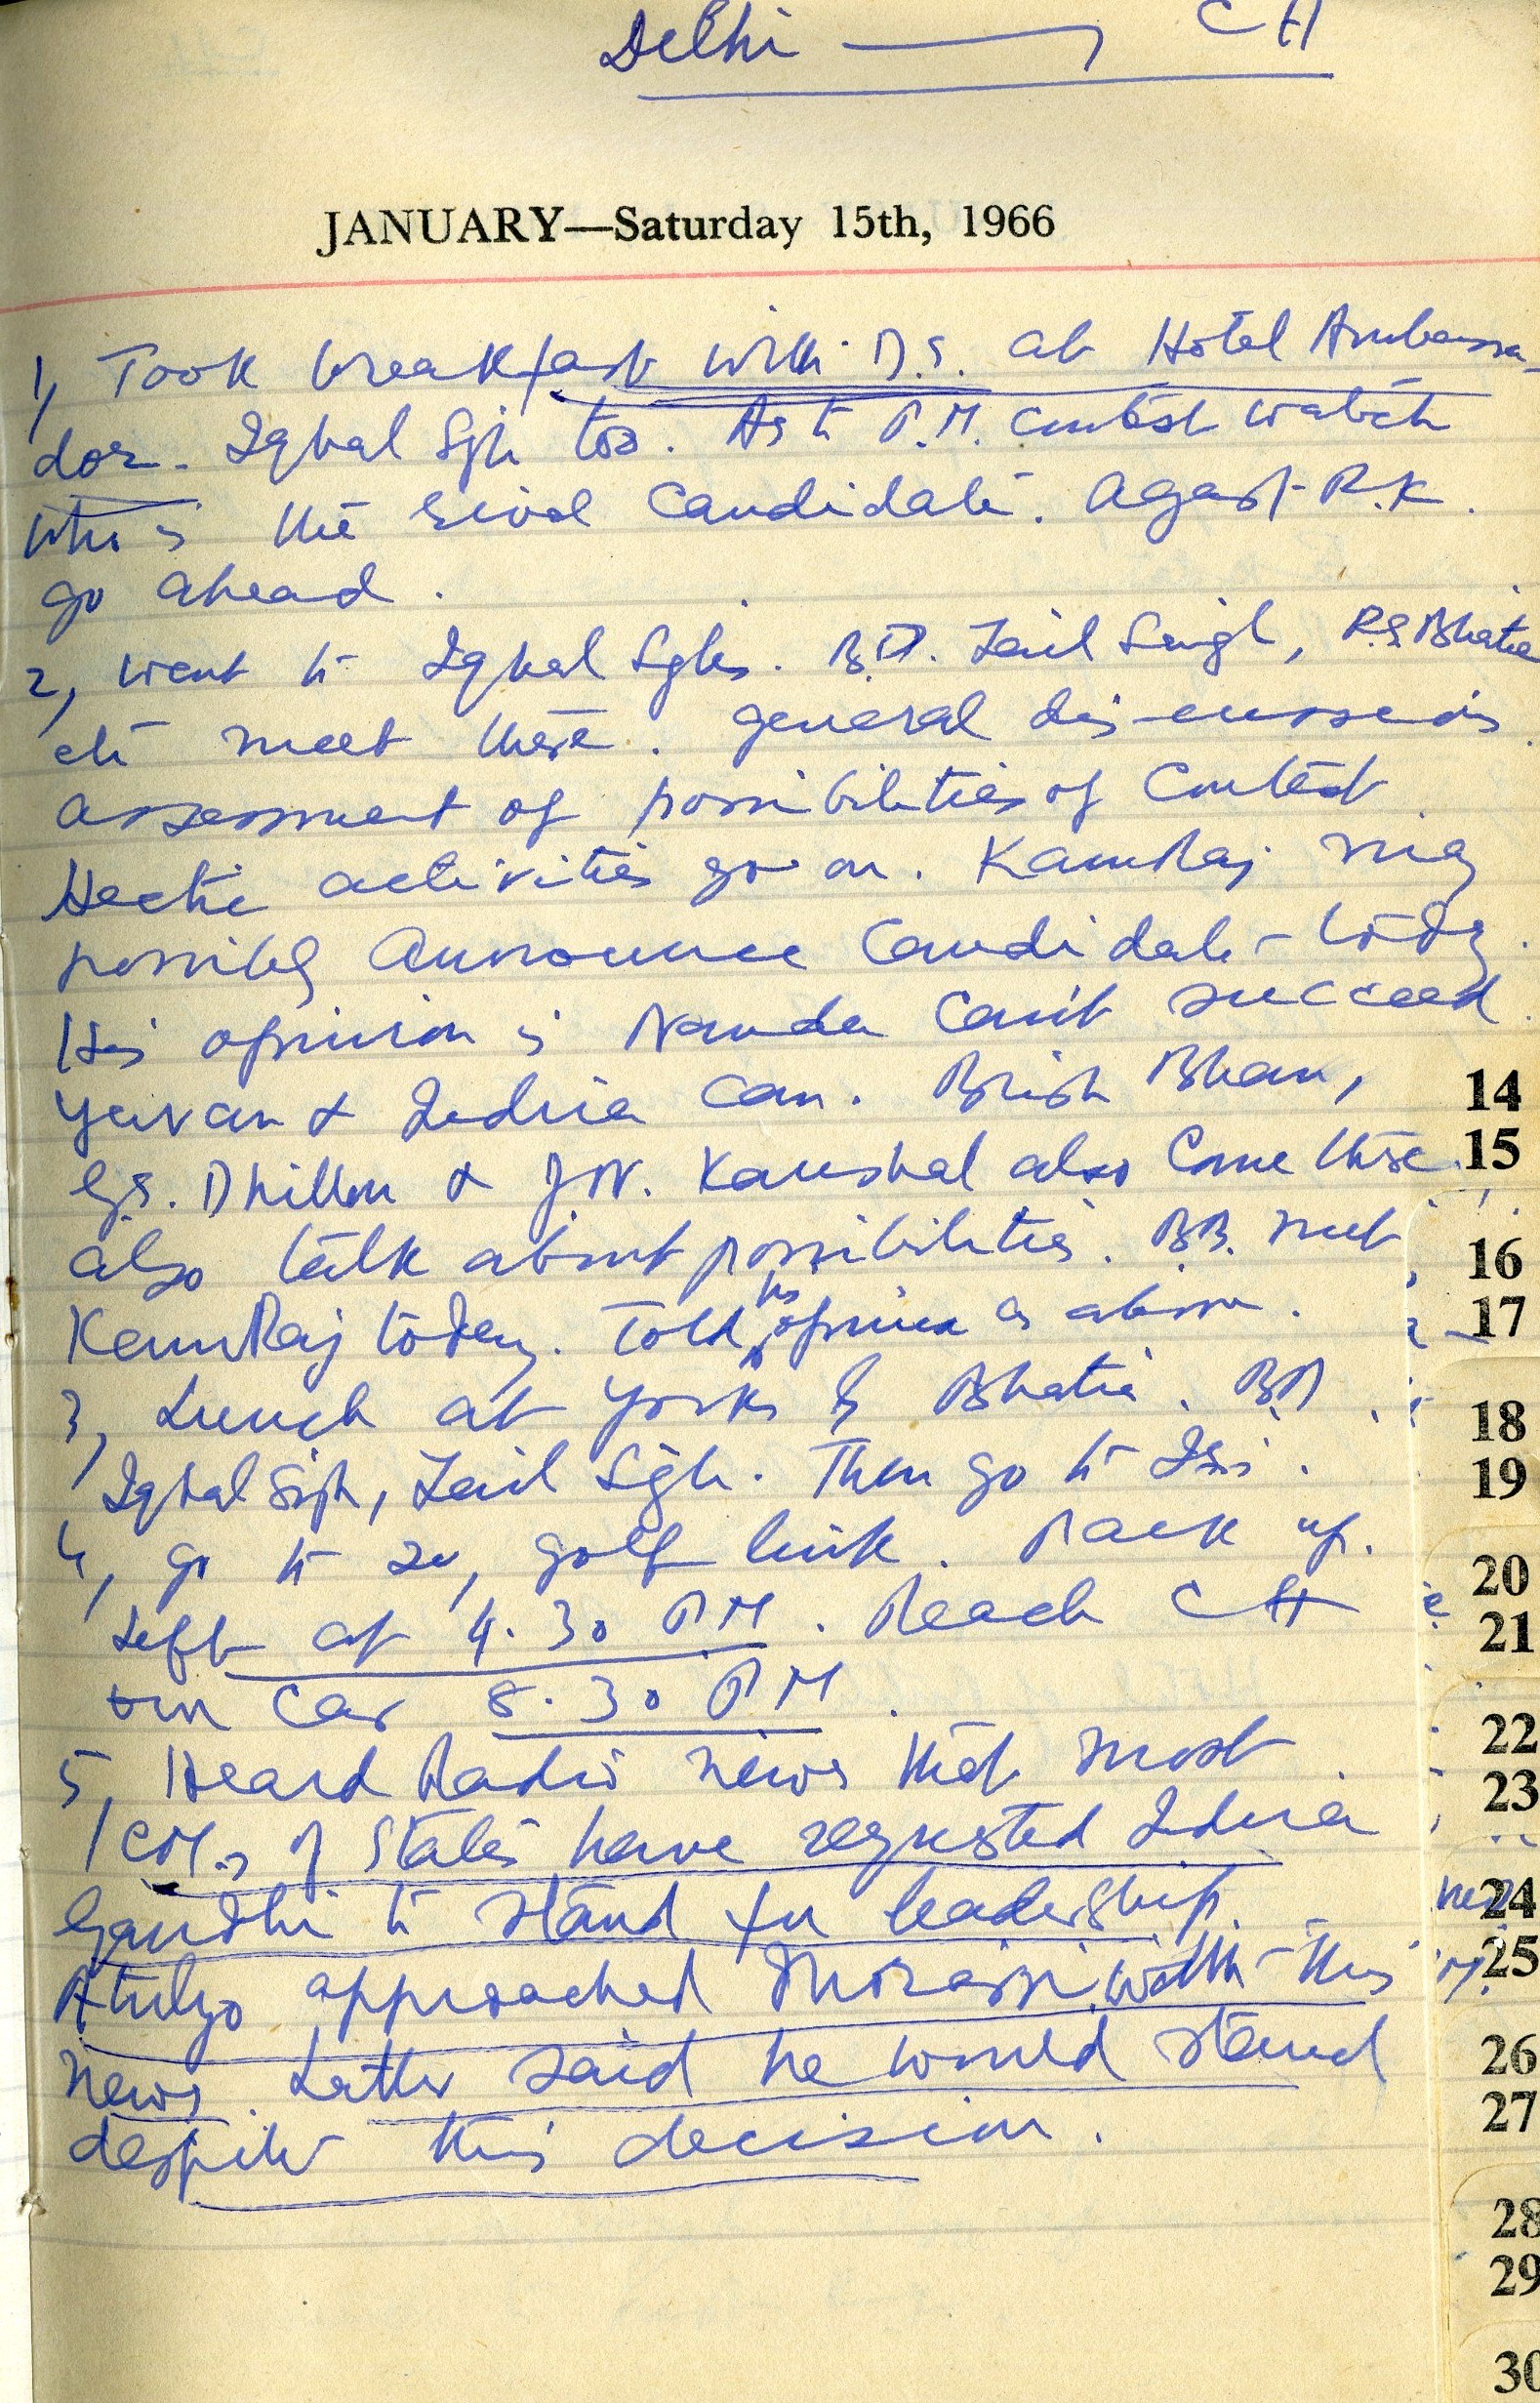 Delhi → CH
JANUARY—Saturday 15th, 1966
1, Took breakfast with D.S. at Hotel Ambassa-
dor. Iqbal Sgh too. As to P.M. contest watch
who is the rival candidate. Agast R.K.
go ahead.
2, Went to Iqbal Sghs. B.D. Zail Singh, R.S Bhatia
etc meet there. general discussions.
assessment of possibilities of contest
Hectic activities go on. KamRaj may
possibly announce candidate today.
His opinion is Nanda can't succeed.
Yavan & Indira can. Brish Bhan,
G.S. Dhillon & J.N. Kaushal also come there.
also talk about possibilities. B.B. met
KamRaj today. Told his opinion as above.
3, Lunch at Yorks by Bhatia. BD
Iqbal Sigh, Zail Sgh. Then go to
4, go to 20, golf link. Pack up.
Left at 4.30 PM. Reach CH
on car 8.30 PM.
5, Heard Radio news that most
CMs of States have requested Indira
Gandhi to stand for leadership.
Atulya approached Morarji with this
news. Latter said he would stand
despite this decision.
14
15
16
17
18
19
20
21
22
23
24
25
26
27
28
29
30